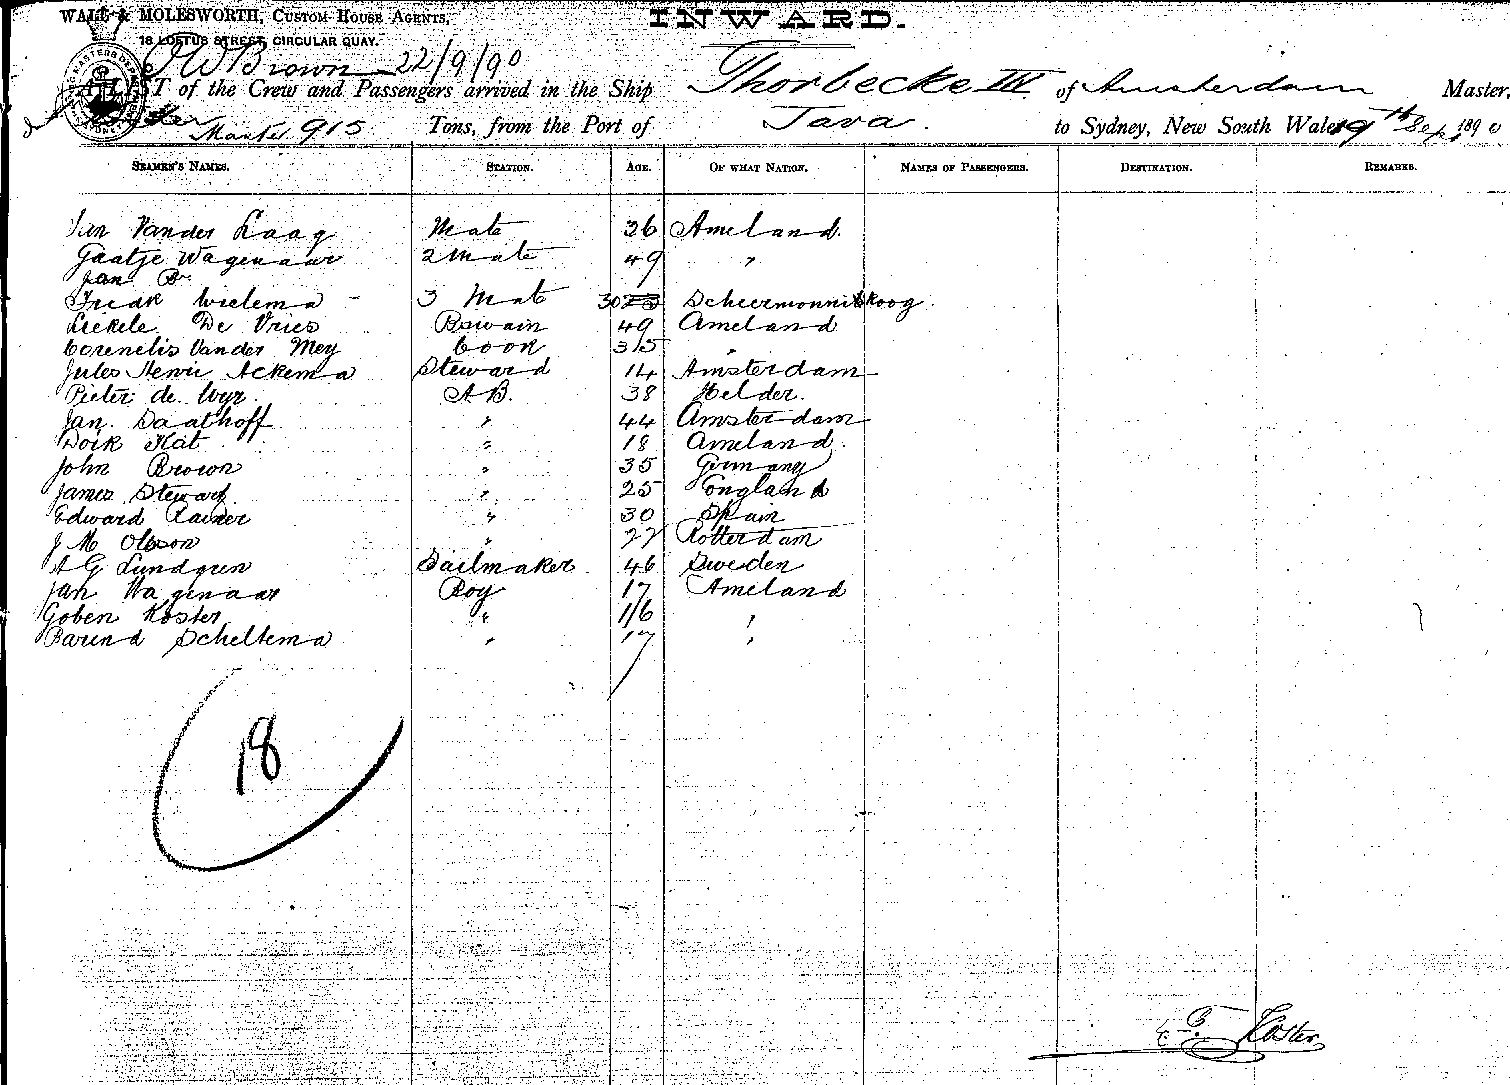 WALL & MOLESWORTH, CUSTOM HOUSE AGENTS,
18 LOFTUS STREET, CIRCULAR QUAY.
INWARD.
JW Brown 22/9/90
A LIST of the Crew and Passengers arrived in the Ship Thorbecke III of Amsterdam Master,
Master 915 Tons, from the Port of Java. to Sydney, New South Wales 19th Sept 1890
SEAMEN'S NAMES. STATION. AGE. OF WHAT NATION. NAMES OF PASSENGERS. DESTINATION. REMARKS.
Jan Vander Laag Mate 36 Ameland.
Gaatje Wagenaar 2 Mate 49 "
Jan B
Freak Wielema 3 Mate 30 Scheermonnikoog.
Liekele De Vries Boswain 49 Ameland
Cornelis Vander Mey Cook 35 "
Jules Henri Ackema Steward 14 Amsterdam
Pieter de Wyr. A B. 38 Helder.
Jan Daathoff " 44 Amsterdam
Doik Kat " 18 Ameland.
John Brown " 35 Germany
James Stewart " 25 England
Edward Rainer " 30 Spain
J M Olsson " 22 Rotterdam
A G Lundgren Sailmaker 46 Sweden
Jan Wagenaar Boy 17 Ameland
Goben Koster " 16 "
Barend Scheltema " 17 "
18
Koster